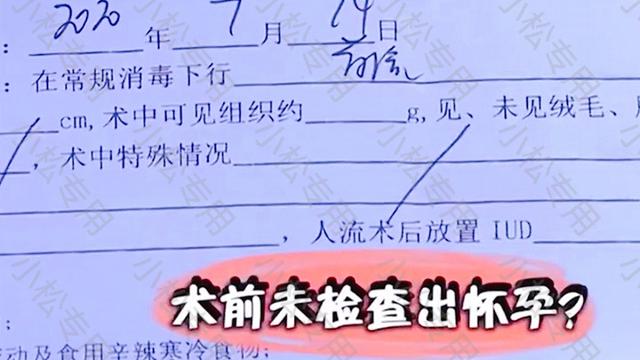 : 2020 年 7 月 日
: 在常规消毒下行
cm,术中可见组织约 g,见、未见绒毛、
,术中特殊情况
,人流术后放置 IUD
术前未检查出怀孕?
动及食用辛辣寒冷食物;
小松专用